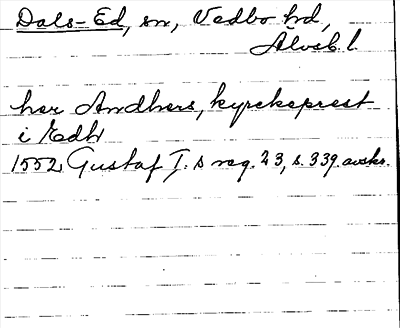 Dals-Ed, sn, Vedbo hd,
Älvsb. l.
her Andhers, kyrckeprest
i Edh
1552 Gustaf I. s reg. 23, s. 339. avskr.